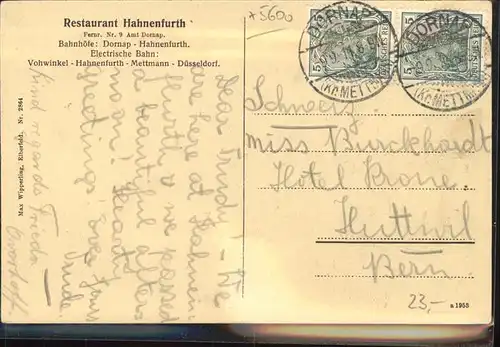 Restaurant Hahnenfurth
Fernr. Nr. 9 Amt Dornap.
Bahnhöfe: Dornap - Hahnenfurth.
Electrische Bahn:
Vohwinkel - Hahnenfurth - Mettmann - Düsseldorf.
Max Wipperling, Elberfeld, Nr. 2864
+5600
DORNAP
(Kr. METTM
DORNAP
(Kr. METTM
5
5
5
Schweiz.
Miss Burckhardt
Hôtel Krone.
Huttwil
Bern.
Dear Trudy! - We
are here at Hahnen-
furth & we passed
a beautiful after-
noon! Hearty
greetings
kind regards Frieda
23,-
a 1953